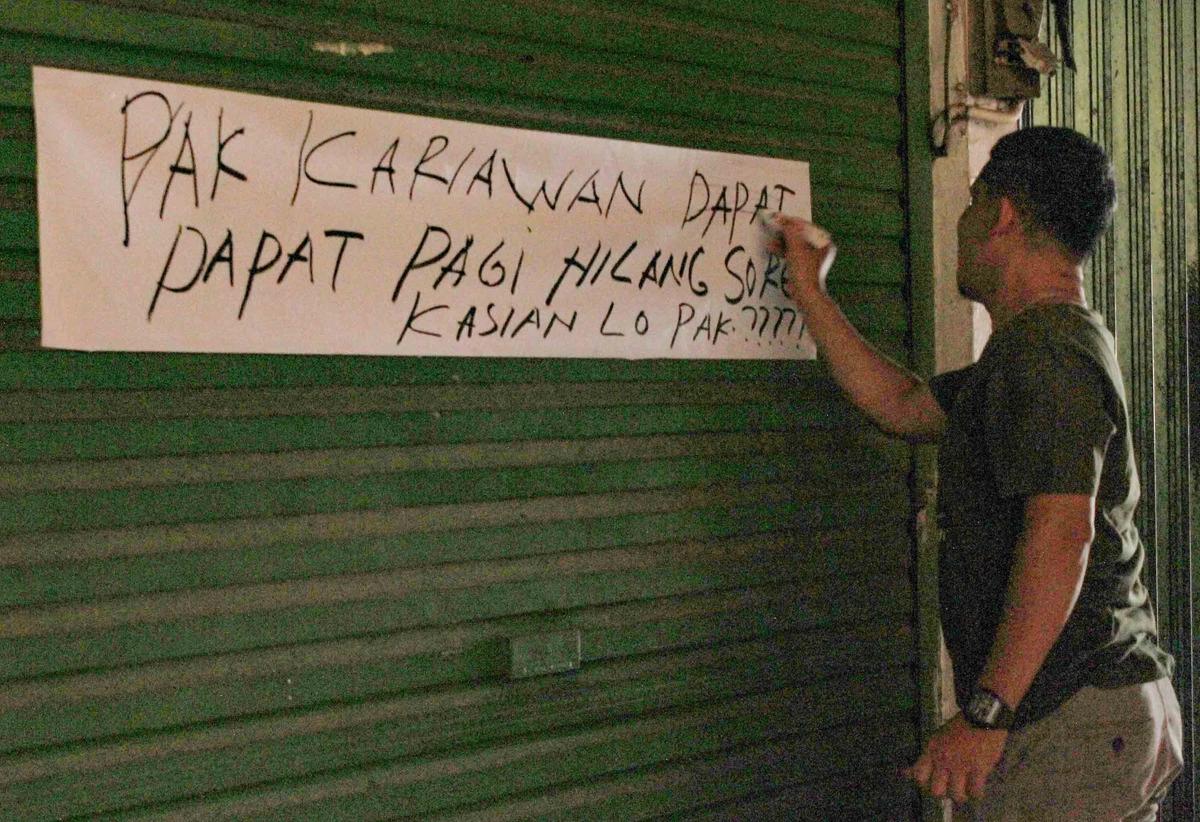 PAK KARIAWAN DAPAT
DAPAT PAGI HILANG SORE
KASIAN LO PAK.?????